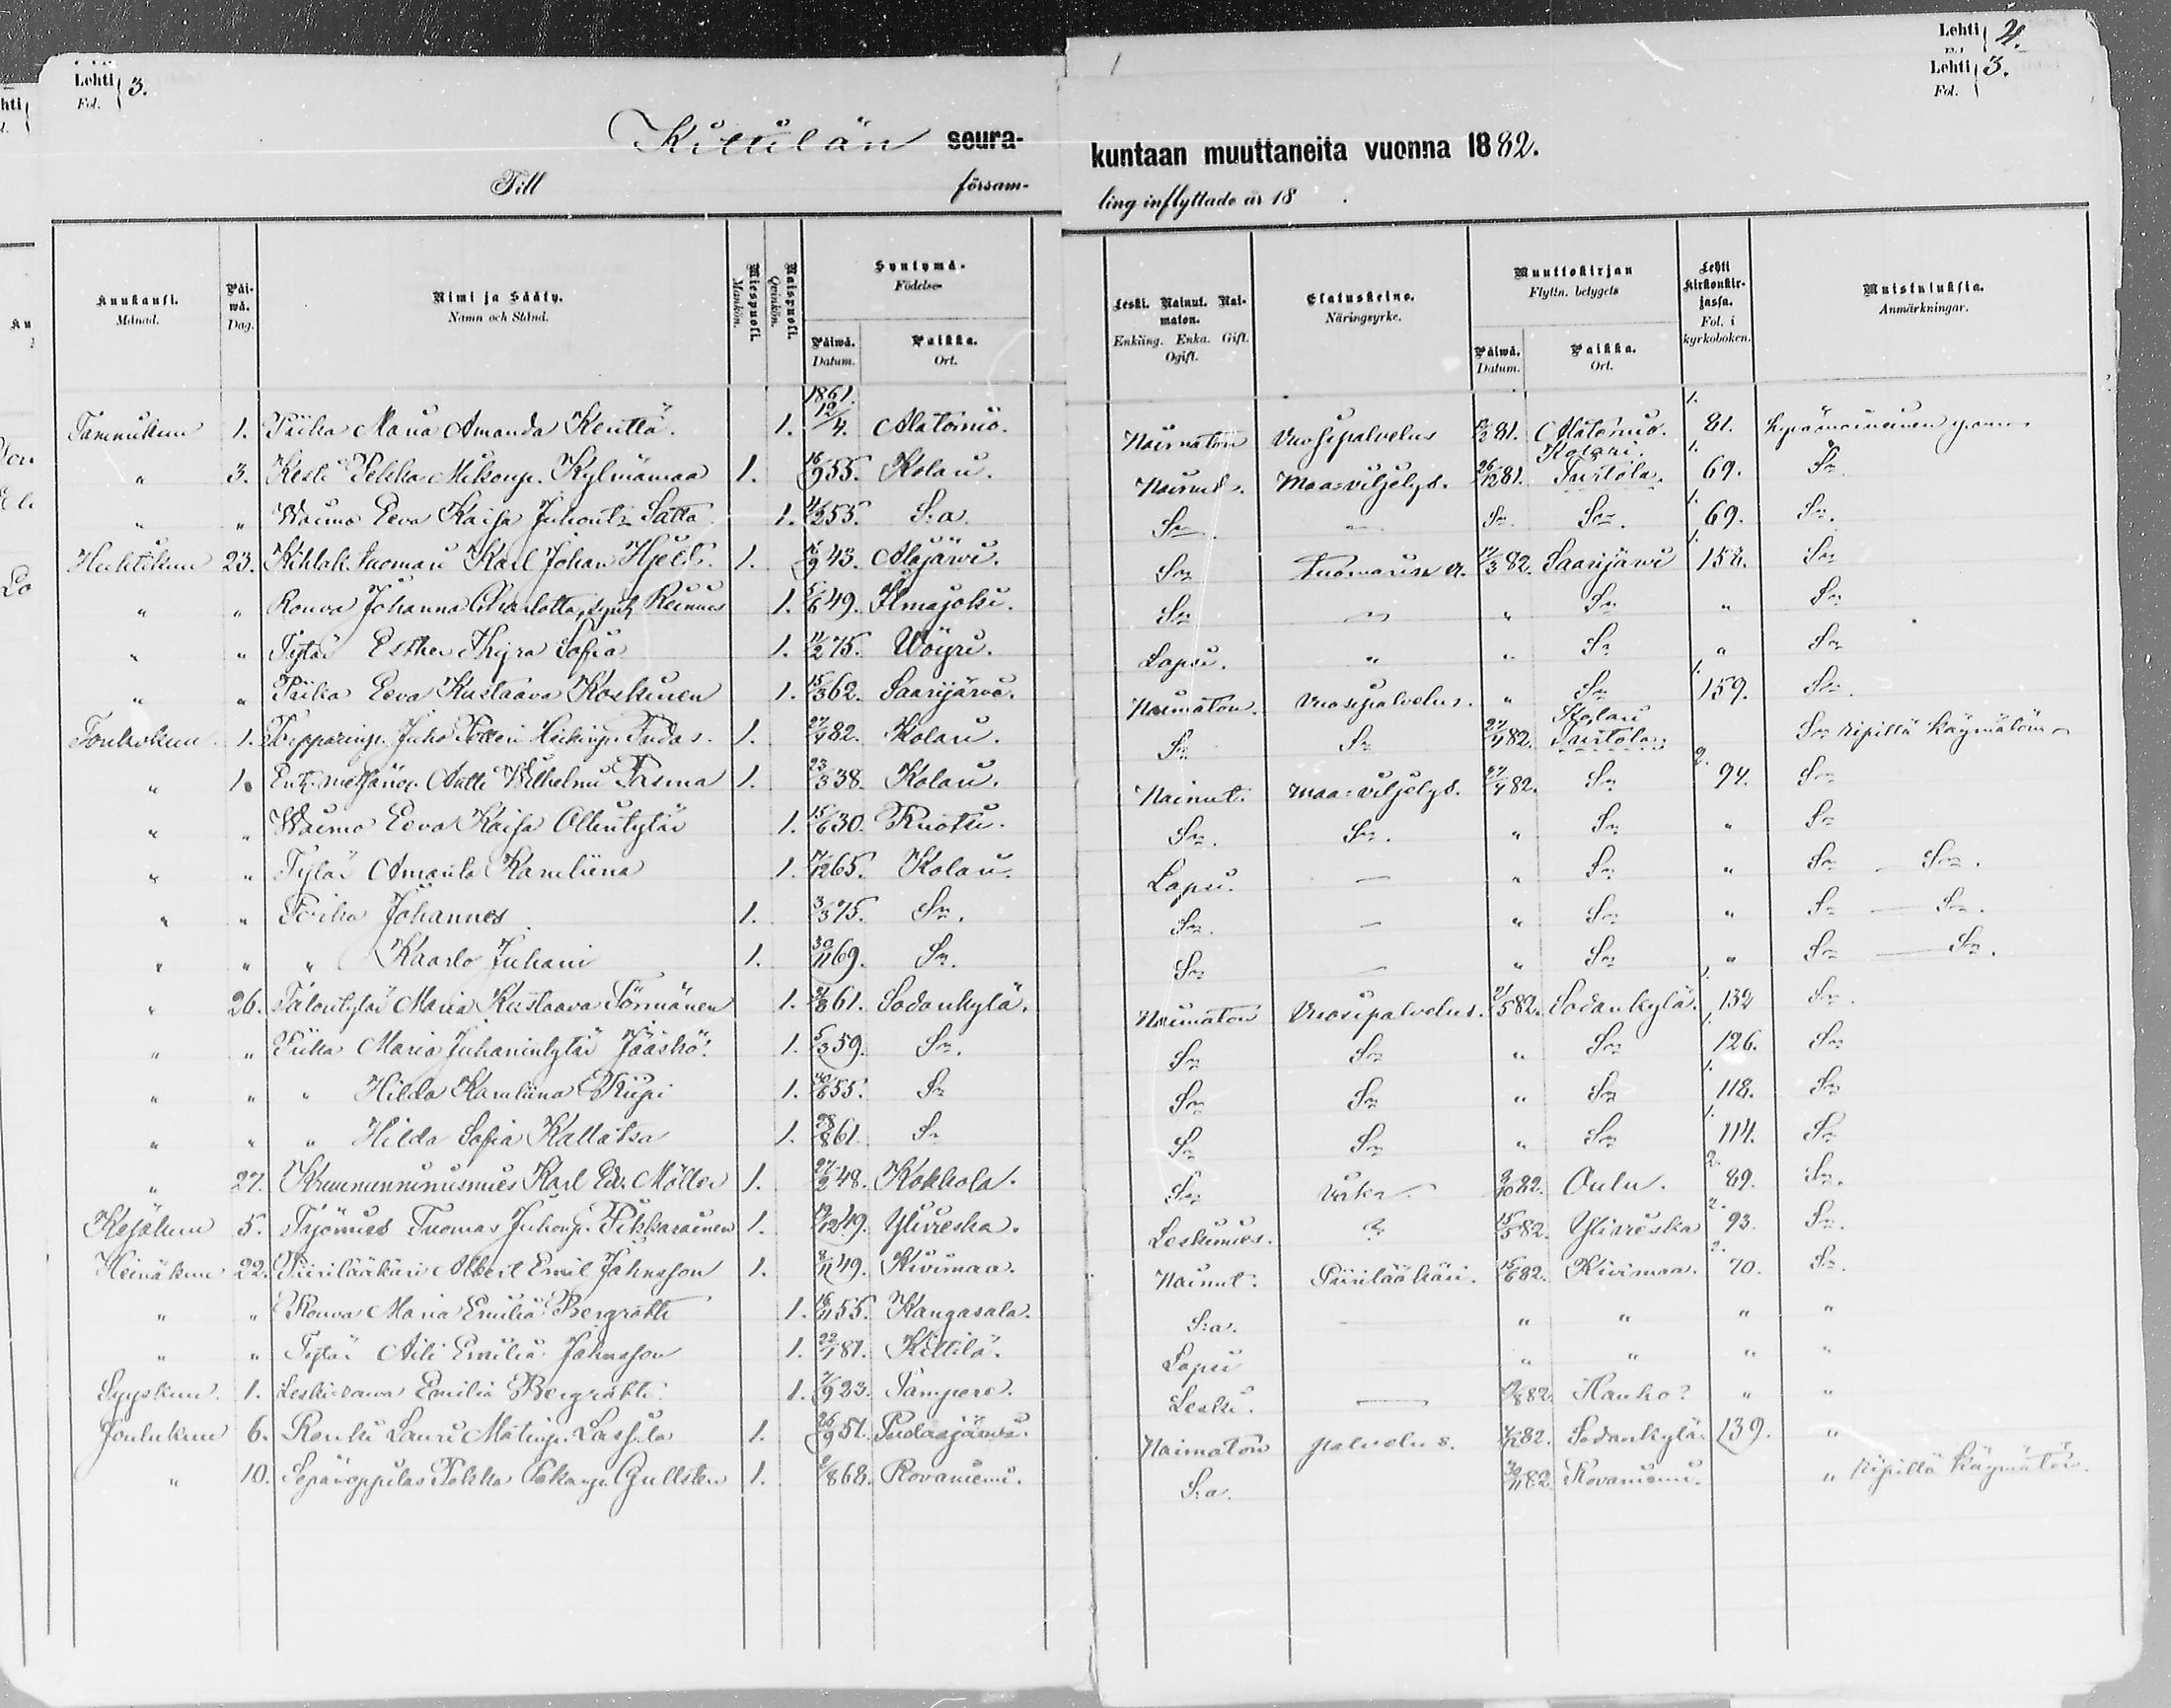 Lehti 3.
Fol.
Lehti 4.
Lehti 3.
Fol.
Kittilän seura- kuntaan muuttaneita vuonna 1882.
Till försam- ling inflyttade år 18 .
Kuukausi. Månad. Päiwä. Dag. Nimi ja Sääty. Namn och Stånd. Miespuoli. Mankön. Naispuoli. Qvinkön. Syntymä- Födelse- Päiwä. Datum. Paikka. Ort. Leski. Nainut. Naimaton. Enkling. Enka. Gift. Ogift. Elatuskeino. Näringsyrke. Muuttokirjan Flyttn. betygets Päiwä. Datum. Paikka. Ort. Lehti kirkonkirjassa. Fol. i kyrkoboken. Muistutuksia. Anmärkningar.
1861.
Tammikuu 1. Piika Maria Amanda Kenttä. 1. 19/4. Alatornio. Naimaton Vuosipalvelus 12/2 81. Alatornio. 1. 81.
" 3. Kesti Pekka Mikonp. Kylmämaa 1. 16/9 55. Kolari. Nainut. Maa=viljelys. 26/12 81. Kolari. Turtola. 1. 69. Sn
" " Waimo Eeva Kaisa Juhont. Satta 1. 4/2 55. S:a Sn — Sn. Sn. 1. 69. Sn.
Huhtikuu 23. Kihlak. tuomari Karl Johan Hjelt. 1. 16/9 43. Alajärvi. Sn 17/3 82. Saarijärvi 1. 158. Sn
" " Rouva Johanna Charlotta, synt. Reinius 1. 5/6 49. Ilmajoki. Sn " Sn " Sn
" " Tytär Esther Thyra Sofia 1. 11/2 75. Wöyri. Lapsi. " " Sn " Sn
" " Piika Eeva Kustaava Koskinen 1. 15/3 62. Saarijärvi. Naimaton. Vuosipalvelus. " Sn 1. 159. Sn.
Toukokuu. 1. Juho Petteri Heikinp. 1. 27/4 82. Kolari. Sn Sn 27/4 82. Kolari Turtola. Sn ripillä käymätön
" 1. Antti Wilhelmi 1. 23/3 38. Kolari. Nainut. maa=viljelys. 27/4 82. Sn 2. 94. Sn
" " Waimo Eeva Kaisa Ollintytär 1. 15/6 30. Sn. Sn. " Sn " Sn
" " Tytär Amanda Karoliina 1. 7/12 65. Kolari. Lapsi. — " Sn " Sn — Sn.
" " Poika Johannes 1. 3/3 75. Sn. Sn. — " Sn " Sn — Sn.
" " " Kaarlo Juhani 1. 30/11 69. Sn. Sn — " Sn " Sn — Sn.
" 26. Talontytär Maria Kustaava Törmänen 1. 61. Sodankylä. Naimaton Vuosipalvelus. 21/5 82. Sodankylä. 1. 132 Sn.
" " Piika Maria Juhanintytär Jääskö. 1. 5/3 59. Sn. Sn Sn " Sn 1. 126. Sn
" " " Hilda Karoliina Riipi 1. 55. Sn Sn Sn " Sn 1. 118. Sn
" " " Hilda Sofia Kallatsa 1. 28/8 61. Sn Sn Sn " Sn 1. 114. Sn
" 27. Kruununnimismies Karl Ed. Möller 1. 27/2 48. Kokkola. Sn Virka. 3/10 82. Oulu. 2. 89. Sn.
Kesäkuu 5. Työmies Tuomas Juhonp. Pikkarainen 1. 19/12 49. Ylivieska. Leskimies. ? 15/5 82. Ylivieska 2. 93. Sn.
Heinäkuu 22. Piirilääkäri Albert Emil Johnsson 1. 8/11 49. Kivimaa. Nainut. Piirilääkäri. 15/6 82. Kivimaa. 2. 70. Sn.
" " Rouva Maria Emilia Bergroth 1. 16/11 55. Kangasala. S:a. " " " "
" " Tytär Aili Emilia Johnsson 1. 22/7 81. Kittilä. Lapsi " " " "
Syyskuu. 1. Leskirouva Emilia Bergroth. 1. 7/9 23. Tampere. Leski. — 19/8 82. Hauho? " "
Joulukuu 6. Renki Lauri Matinp. Lassila 1. 26/9 51. Pudasjärvi. Naimaton palvelus. 82. Sodankylä 139. "
" 10. Sepänoppilas Pekka Pekanp. Gullsten 1. 2/8 68. Rovaniemi. S:a. 30/11 82. Rovaniemi. " ripillä käymätön.